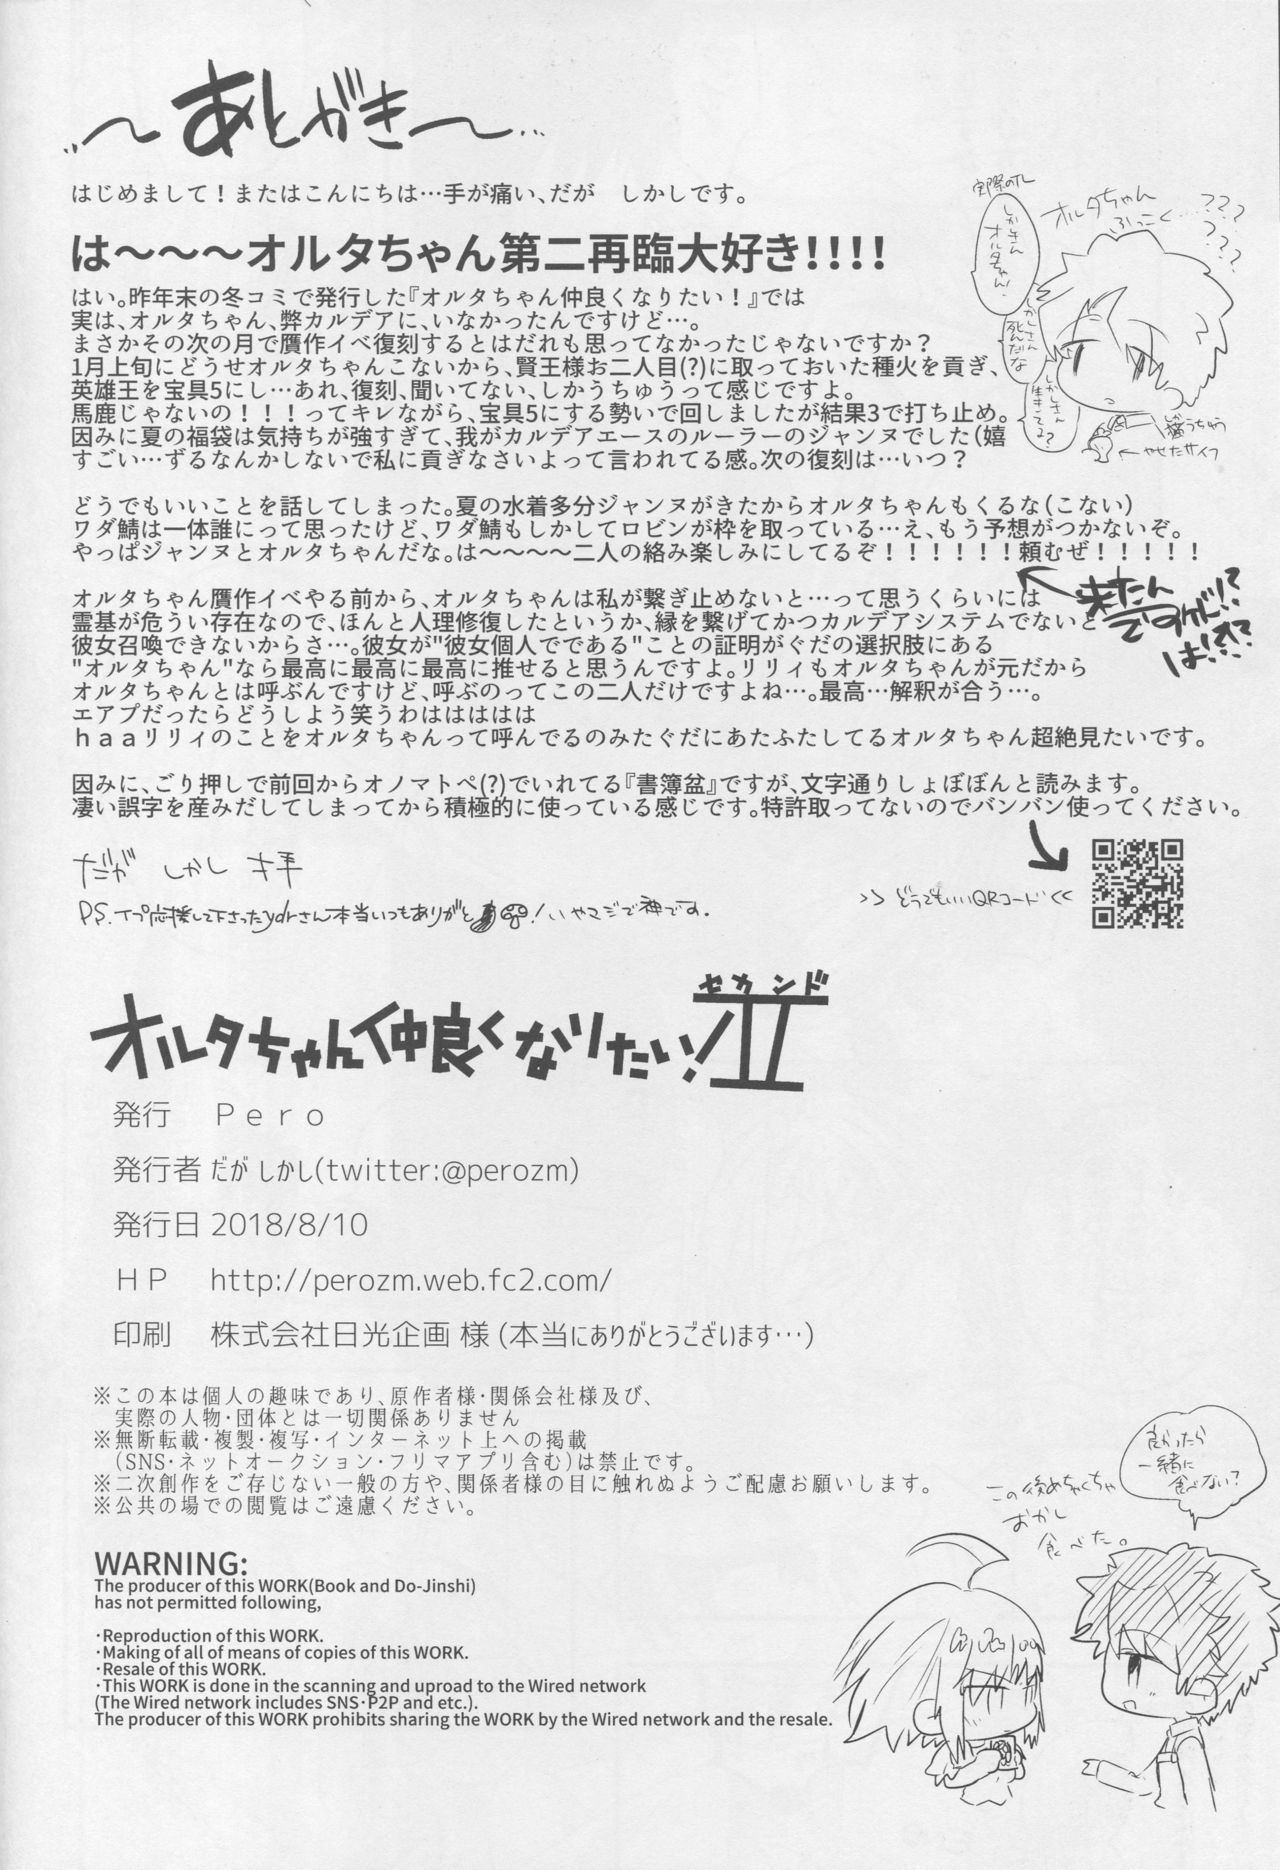 〜あとがき〜
はじめまして！またはこんにちは…手が痛い、だが　しかしです。
は〜〜〜オルタちゃん第二再臨大好き！！！！
はい。昨年末の冬コミで発行した『オルタちゃん仲良くなりたい！』では
実は、オルタちゃん、弊カルデアに、いなかったんですけど…。
まさかその次の月で贋作イベ復刻するとはだれも思ってなかったじゃないですか？
1月上旬にどうせオルタちゃんこないから、賢王様お二人目(?)に取っておいた種火を貢ぎ、
英雄王を宝具5にし…あれ、復刻、聞いてない、しかうちゅうって感じですよ。
馬鹿じゃないの！！！ってキレながら、宝具5にする勢いで回しましたが結果3で打ち止め。
因みに夏の福袋は気持ちが強すぎて、我がカルデアエースのルーラーのジャンヌでした（嬉
すごい…ずるなんかしないで私に貢ぎなさいよって言われてる感。次の復刻は…いつ？
どうでもいいことを話してしまった。夏の水着多分ジャンヌがきたからオルタちゃんもくるな（こない）
ワダ鯖は一体誰にって思ったけど、ワダ鯖もしかしてロビンが枠を取っている…え、もう予想がつかないぞ。
やっぱジャンヌとオルタちゃんだな。は〜〜〜〜二人の絡み楽しみにしてるぞ！！！！！！頼むぜ！！！！！
オルタちゃん贋作イベやる前から、オルタちゃんは私が繋ぎ止めないと…って思うくらいには
霊基が危うい存在なので、ほんと人理修復したというか、縁を繋げてかつカルデアシステムでないと
彼女召喚できないからさ…。彼女が"彼女個人でである"ことの証明がぐだの選択肢にある
"オルタちゃん"なら最高に最高に最高に推せると思うんですよ。リリィもオルタちゃんが元だから
オルタちゃんとは呼ぶんですけど、呼ぶのってこの二人だけですよね…。最高…解釈が合う…。
エアプだったらどうしよう笑うわはははははは
ｈａａリリィのことをオルタちゃんって呼んでるのみたぐだにあたふたしてるオルタちゃん超絶見たいです。
因みに、ごり押しで前回からオノマトペ(?)でいれてる『書簿盆』ですが、文字通りしょぼぼんと読みます。
凄い誤字を産みだしてしまってから積極的に使っている感じです。特許取ってないのでバンバン使ってください。
だが しかし 拝
P.S.イプ応援して下さったydrさん本当いつもありがと！いやマジで神です。
>> どうでもいいQRコード <<
実際のTL
しかさん
オルタちゃん!
しかさん
死んだな
しかさん
生きてる?
オルタちゃん
ふっこく……???
???
猫うちゅう
←やせたサイフ
来たん
ですけど!?
は!?!?
オルタちゃん仲良くなりたい！Ⅱ
セカンド
発行　Ｐｅｒｏ
発行者 だが しかし(twitter:@perozm)
発行日 2018/8/10
ＨＰ　http://perozm.web.fc2.com/
印刷　株式会社日光企画 様 (本当にありがとうございます…)
※この本は個人の趣味であり、原作者様・関係会社様及び、
実際の人物・団体とは一切関係ありません
※無断転載・複製・複写・インターネット上への掲載
（SNS・ネットオークション・フリマアプリ含む）は禁止です。
※二次創作をご存じない一般の方や、関係者様の目に触れぬようご配慮お願いします。
※公共の場での閲覧はご遠慮ください。
WARNING:
The producer of this WORK(Book and Do-Jinshi)
has not permitted following,
・Reproduction of this WORK.
・Making of all of means of copies of this WORK.
・Resale of this WORK.
・This WORK is done in the scanning and uproad to the Wired network
(The Wired network includes SNS・P2P and etc.).
The producer of this WORK prohibits sharing the WORK by the Wired network and the resale.
良かったら
一緒に
食べない?
この後めちゃくちゃ
おかし
食べた。